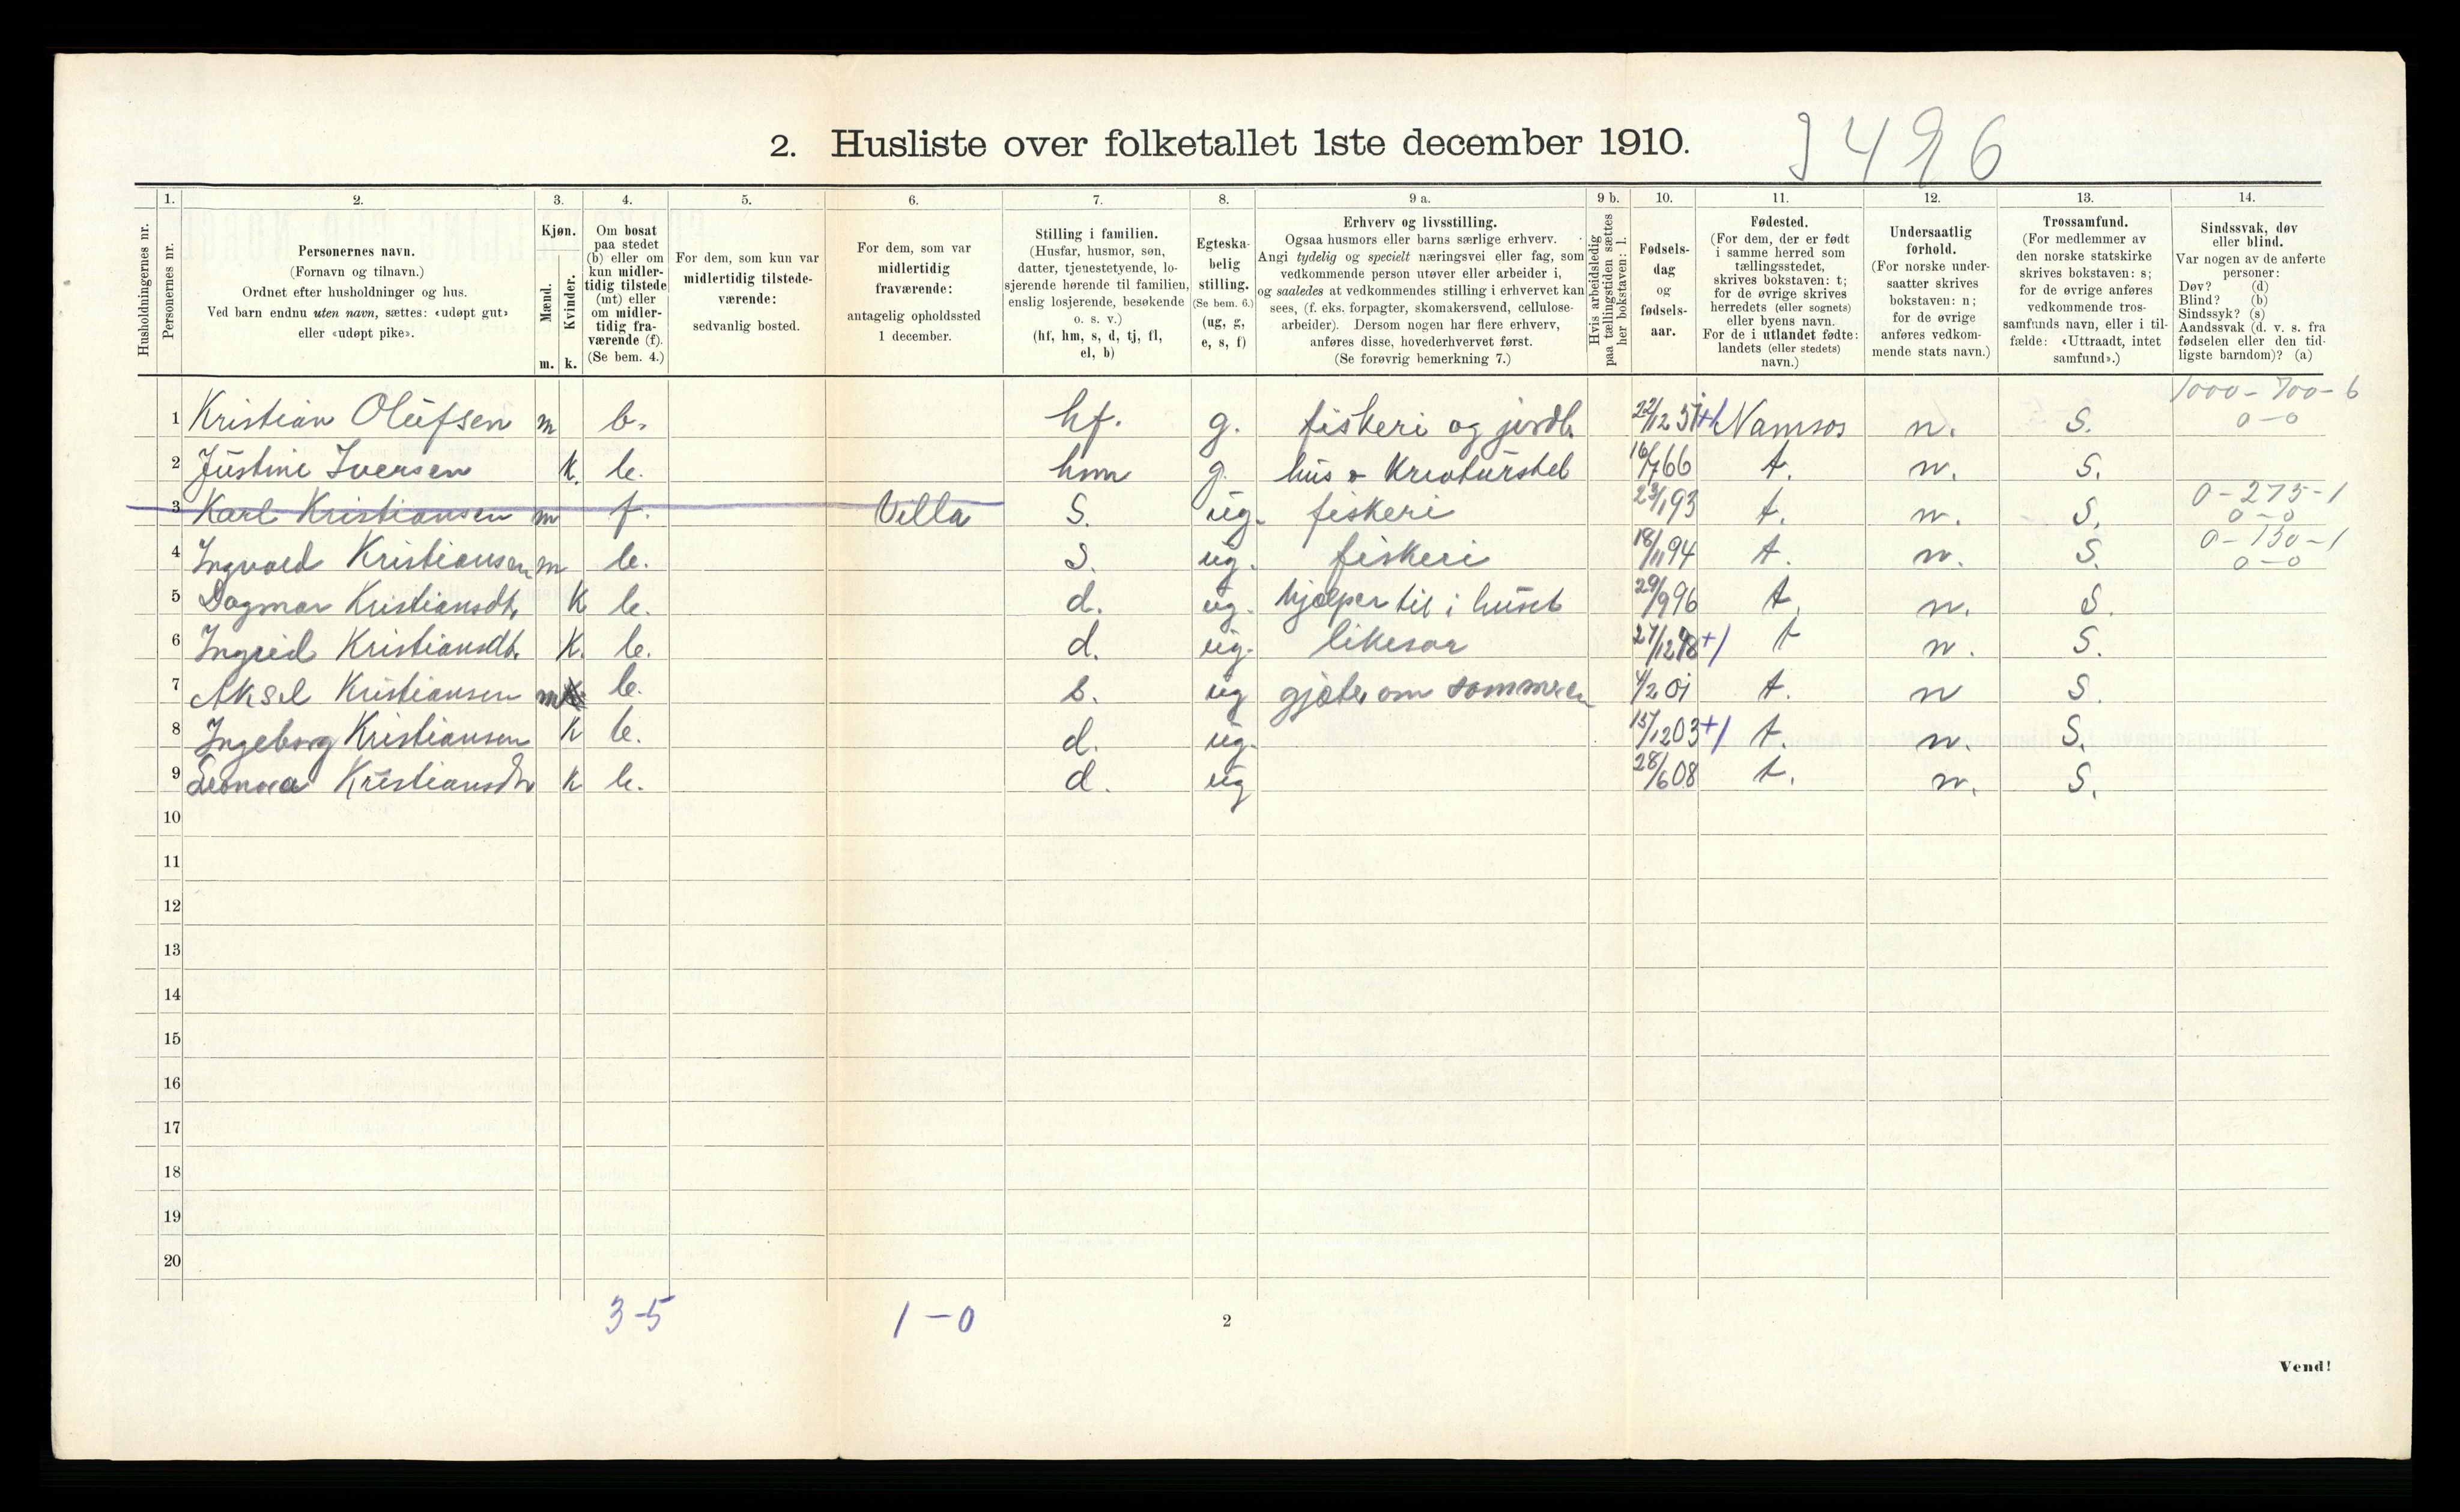 2. Husliste over folketallet 1ste december 1910.
Husholdningernes nr.
1. Personernes nr.
2. Personernes navn.
(Fornavn og tilnavn.)
Ordnet efter husholdninger og hus.
Ved barn endnu uten navn, sættes: «udøpt gut»
eller «udøpt pike».
3. Kjøn.
Mænd. m.
Kvinder. k.
4. Om bosat
paa stedet
(b) eller om
kun midler-
tidig tilstede
(mt) eller
om midler-
tidig fra-
værende (f).
(Se bem. 4.)
5. For dem, som kun var
midlertidig tilstede-
værende:
sedvanlig bosted.
6. For dem, som var
midlertidig
fraværende:
antagelig opholdssted
1 december.
7. Stilling i familien.
(Husfar, husmor, søn,
datter, tjenestetyende, lo-
sjerende hørende til familien,
enslig losjerende, besøkende
o. s. v.)
(hf, hm, s, d, tj, fl,
el, b)
8. Egteska-
belig
stilling.
(Se bem. 6.)
(ug, g,
e, s, f)
9 a. Erhverv og livsstilling.
Ogsaa husmors eller barns særlige erhverv.
Angi tydelig og specielt næringsvei eller fag, som
vedkommende person utøver eller arbeider i,
og saaledes at vedkommendes stilling i erhvervet kan
sees, (f. eks. forpagter, skomakersvend, cellulose-
arbeider). Dersom nogen har flere erhverv,
anføres disse, hovederhvervet først.
(Se forøvrig bemerkning 7.)
9 b. Hvis arbeidsledig
paa tællingstiden sættes
her bokstaven: l.
10. Fødsels-
dag
og
fødsels-
aar.
11. Fødested.
(For dem, der er født
i samme herred som
tællingsstedet,
skrives bokstaven: t;
for de øvrige skrives
herredets (eller sognets)
eller byens navn.
For de i utlandet fødte:
landets (eller stedets)
navn.)
12. Undersaatlig
forhold.
(For norske under-
saatter skrives
bokstaven: n;
for de øvrige
anføres vedkom-
mende stats navn.)
13. Trossamfund.
(For medlemmer av
den norske statskirke
skrives bokstaven: s;
for de øvrige anføres
vedkommende tros-
samfunds navn, eller i til-
fælde: «Uttraadt, intet
samfund».)
14. Sindssvak, døv
eller blind.
Var nogen av de anførte
personer:
Døv? (d)
Blind? (b)
Sindssyk? (s)
Aandssvak (d. v. s. fra
fødselen eller den tid-
ligste barndom)? (a)
1000-700-6
1 Kristian Olufsen m b. hf. g. fiskeri og jordb. 22/12 57 +1 Namsos n. S. 0-0
2 Justine Iversen k. b. hm g. hus o kreaturstel 16/7 66 t. n. S.
3 Karl Kristiansen m f. Villa S. ug. fiskeri 23/1 93 t. n. S. 0-275-1 0-0
4 Ingvald Kristiansen m b. S. ug. fiskeri 18/11 94 t. n. S. 0-130-1 0-0
5 Dagmar Kristiansdt. k b. d. ug. hjælper til i huset 29/9 96 t. n. S.
6 Ingrid Kristiansdt. k. b. d. ug. likesaa 27/12 98 +1 t n. S.
7 Aksel Kristiansen m b. s. ug gjæter om sommeren 4/2 01 t. n S
8 Ingeborg Kristiansen k b. d. ug. 15/12 03 +1 t. n. S.
9 Leonora Kristiansdtr k b. d. ug 28/6 08 t. n. S.
10
11
12
13
14
15
16
17
18
19
20
3-5 1-0
2
Vend!